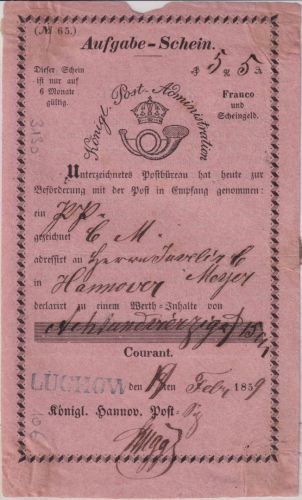 (№ 65.)
Aufgabe-Schein.
Dieser Schein
ist nur auf
6 Monate
gültig.
5 5
Franco
und
Scheingeld.
Königl. Post-Administration
3130
Unterzeichnetes Postbüreau hat heute zur
Beförderung mit der Post in Empfang genommen:
ein PP.
gezeichnet C M.
adressirt an Herrn C
Meyer
in Hannover
declarirt zu einem Werth-Inhalte von
Achtundvierzig 15
Courant.
LUCHOW den 19ten Febr 1859
Königl. Hannov. Post-